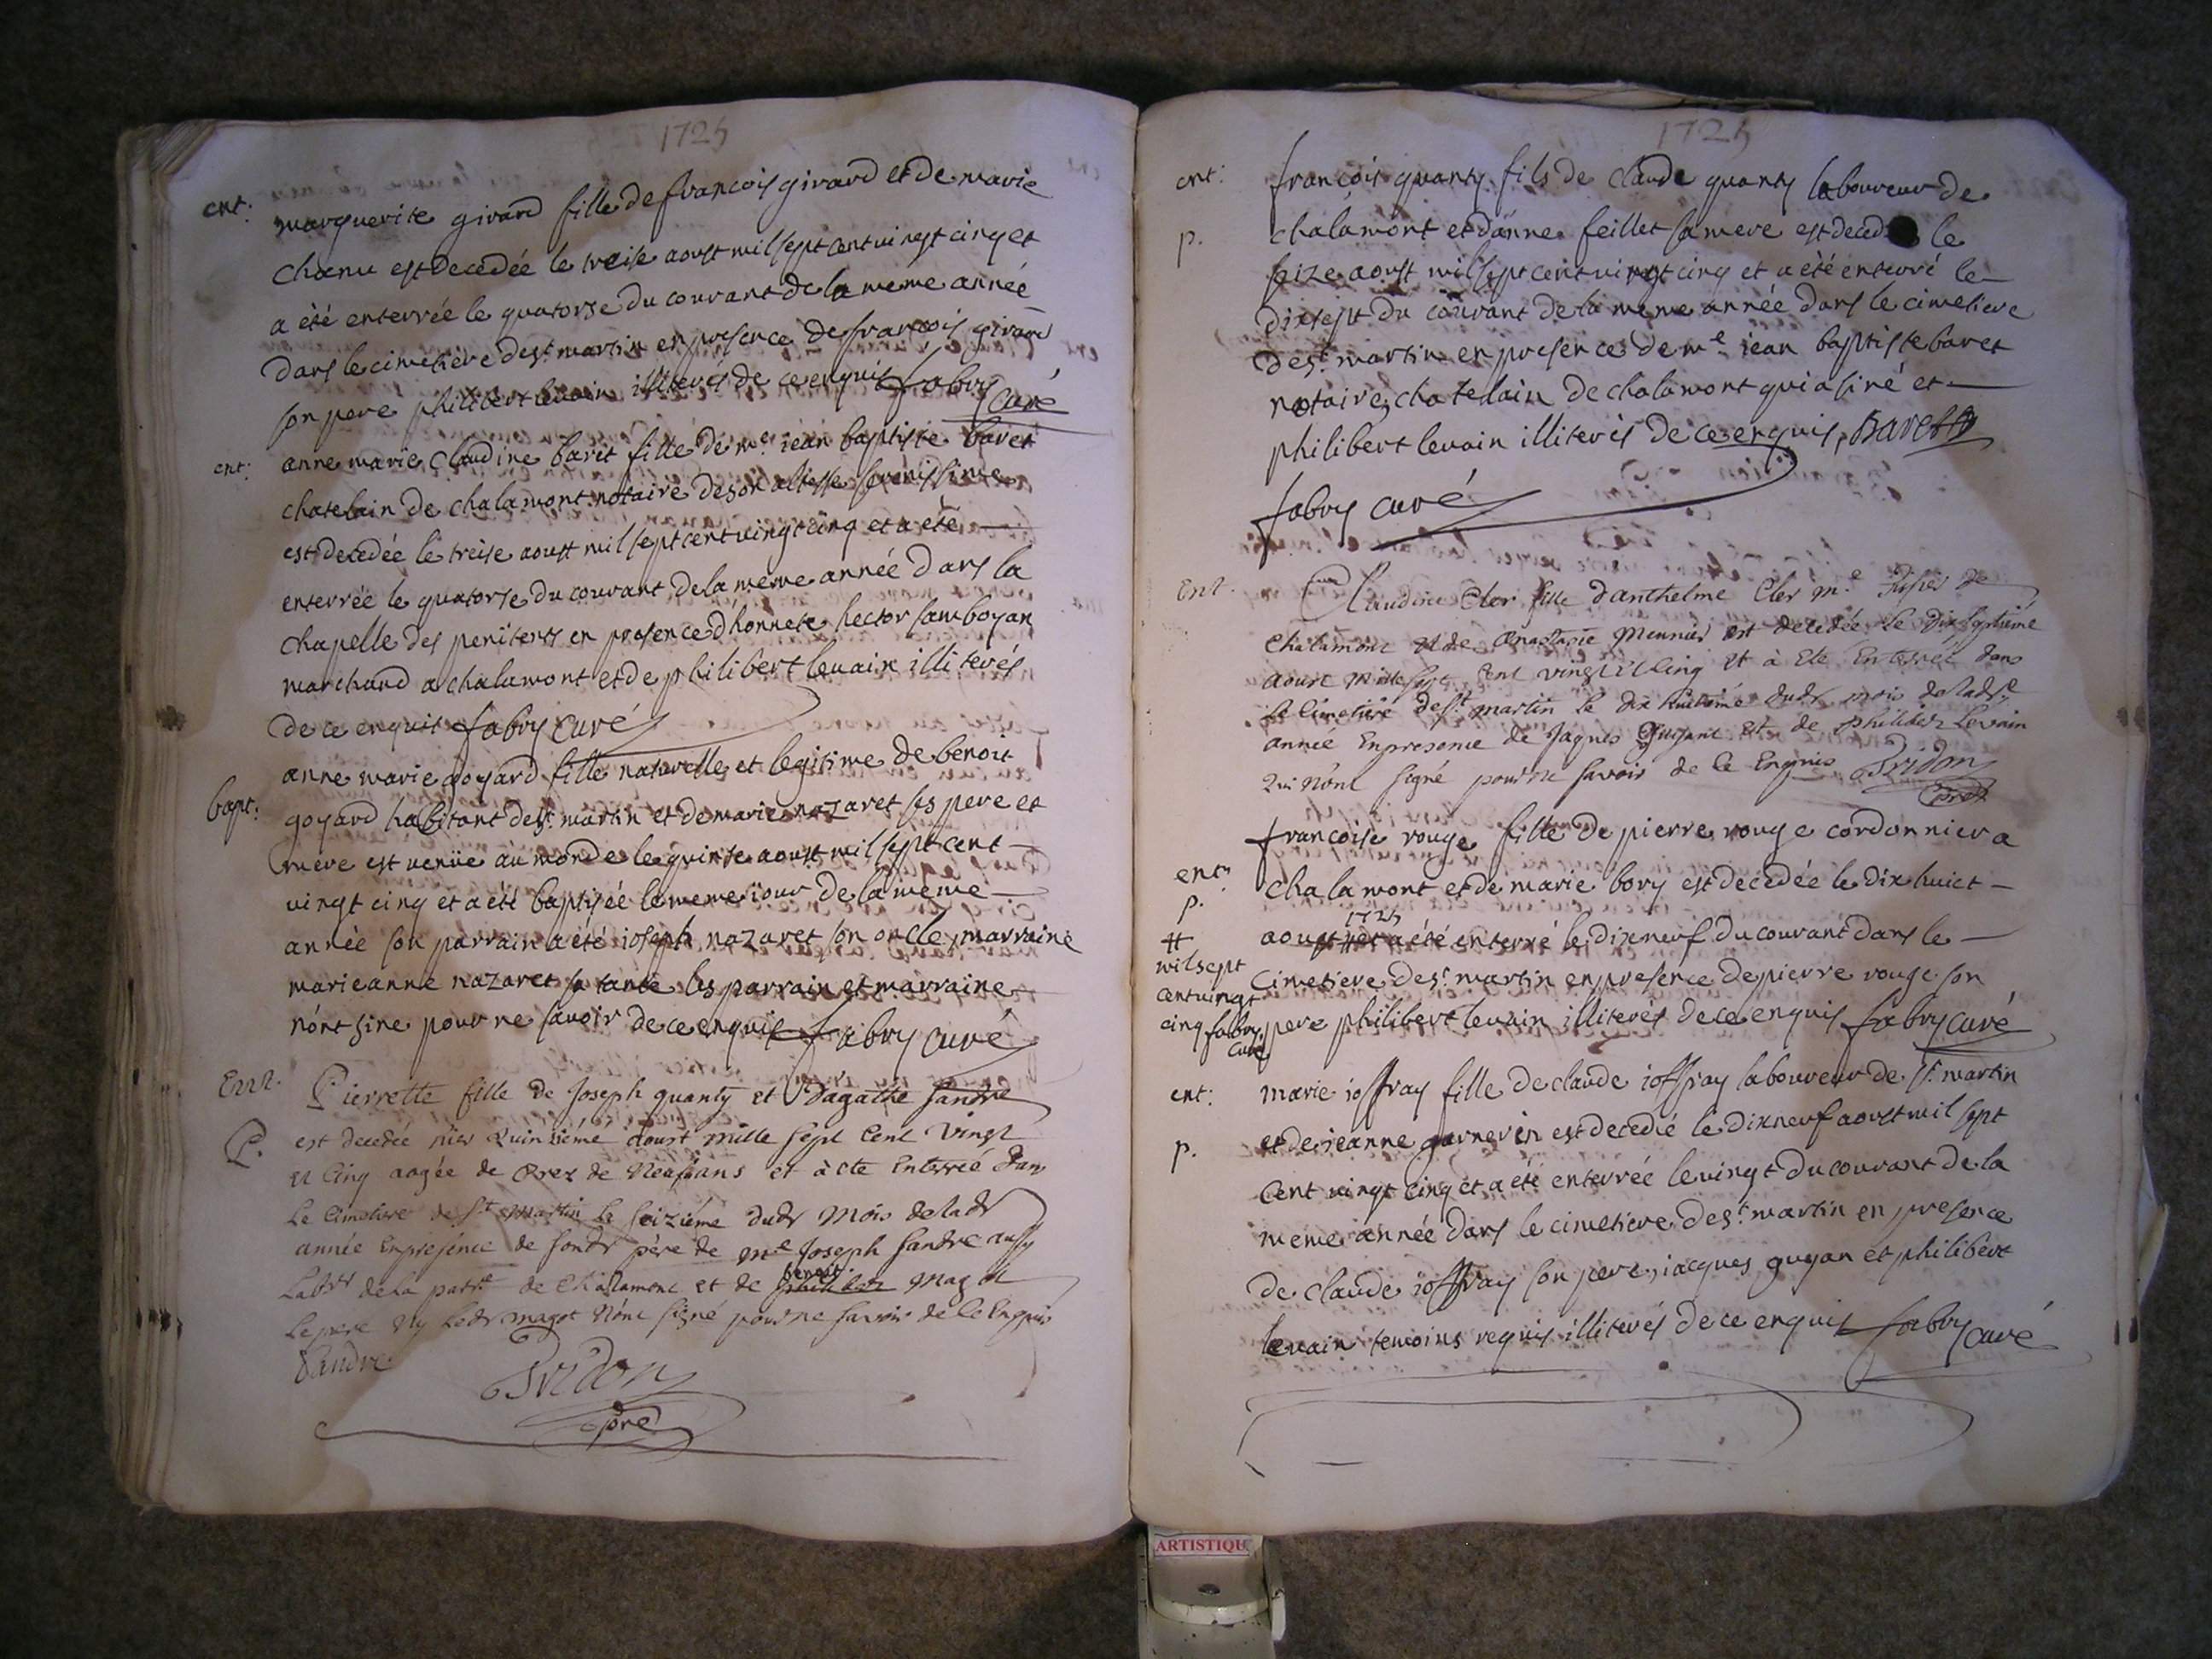 1725
ent:
marguerite girard fille de francois girard et de marie
chanu est decedée le treise aoust mil sept cent vingt cinq et
a été enterrée le quatorse du courant de la meme année
dans le cimetiere de st martin en presence de francois girard
son pere philibert levain illiterés de ce enquis fabry curé
ent:
anne marie claudine baret fille de me iean baptiste baret
chatelain de chalamont notaire de son altesse serenissime
est decedée le treise aoust mil sept cent vingt cinq et a été
enterrée le quatorse du courant de la meme année dans la
chapelle des penitens en presence d'honnete hector samboyan
marchand a chalamont et de philibert levain illiterés
de ce enquis fabry curé
bapt:
anne marie goyard fille naturelle et legitime de benoit
goyard habitant de st martin et de marie nazaret ses pere et
mere est venüe au monde le quinse aoust mil sept cent
vingt cinq et a été baptisée le meme iour de la meme
année son parrain a été ioseph nazaret son oncle, marraine
marieanne nazaret sa tante les parrain et marraine
n'ont sine pour ne savoir de ce enquis fabry curé
Ent.
P.
Pierrette fille de Joseph quanty et D'agathe Sandre
est decedée hier Quinzieme aoust mille Sept Cent Vingt
et Cinq aagée de prez de Neuf ans et à ete Enterrée dans
Le Cimetiere de St Martin le seizième dudt mois de ladt
année En presence de sondt père de me Joseph Sandre aussy
Labr de la parsse de Chalamont et de benoit philiber Magot
Le pere ny Ledt magot N'ont signé pour ne savoir de Ce Enquis
Sandre
Bridon
pre
1725
ent:
p.
francois quanty fils de claude quanty laboureur de
chalamont et d'anne feillet sa mere est deced le
seize aoust mil sept cent vingt cinq et a été enterré le
dixsept du courant de la meme année dans le cimetiere
de st martin en presence de me iean baptiste baret
notaire, chatelain de chalamont qui a siné et
philibert levain illiterés de ce enquis, Baret
fabry curé
Ent.
Claudine Cler fille d'anthelme Cler me de
Chalamont et de Anastasie Meunier est decedée le dix septième
aoust mille sept Cent vingt et Cinq et à Ete Enterrée dans
le Cimetiere de St martin le dix huitième dudt mois de ladte
année En presence de Jaques Guyant et de philiber Levain
Qui n'ont signé pour ne savoir de Ce Enquis Bridon
pre
entr
p.
francoise rouge fille de pierre rouge cordonnier a
chalamont et de marie bory est decedée le dix huict
1725
aoust et a été enterré le dixneuf du courant dans le
cimetiere de st martin en presence de pierre rouge son
pere philibert levain illiterés de ce enquis fabry curé
#
mil sept
cent vingt
cinq fabry
curé
ent:
p.
marie ioffray fille de claude ioffray laboureur de st martin
et de ieanne garnerin est decedée le dixneuf aoust mil sept
cent vingt cinq et a été enterrée le vingt du courant de la
meme année dans le cimetiere de st martin en presence
de claude ioffray son pere, iacques guyan et philibert
levain temoins requis illiterés de ce enquis fabry curé
ARTISTIQU